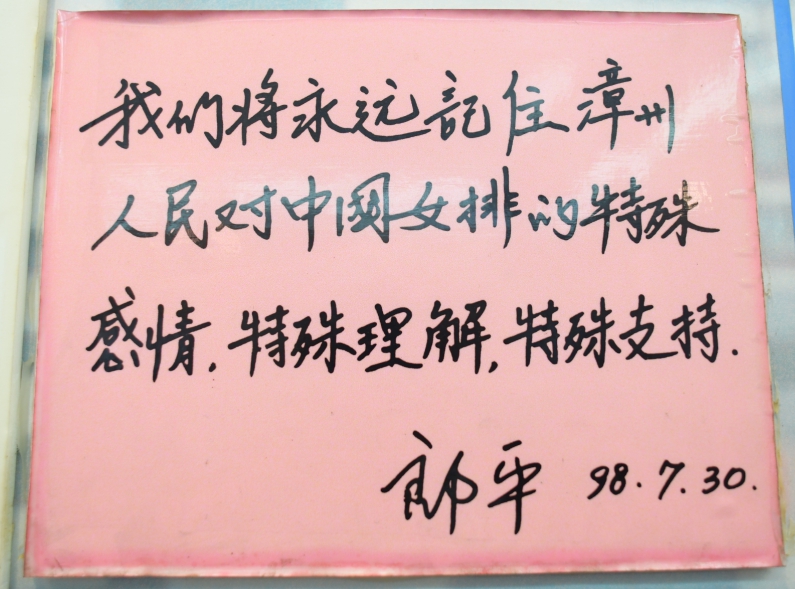 我们将永远記住漳州
人民对中國女排的特殊
感情,特殊理解,特殊支持.
郎平 98.7.30.